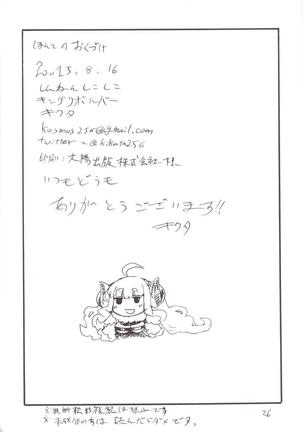 ほんとのおくづけ
2015.8.16
しんわーんしこしこ
キングリボルバー
キクタ
kosmos256@gmail.com
twitter = @kikuta256
印刷：大陽出版株式会社様
いつもどうも
ありがとうございまーす!!
キクタ
※無断転載複製は禁止です
※未成年の方は読んだらダメです。
26